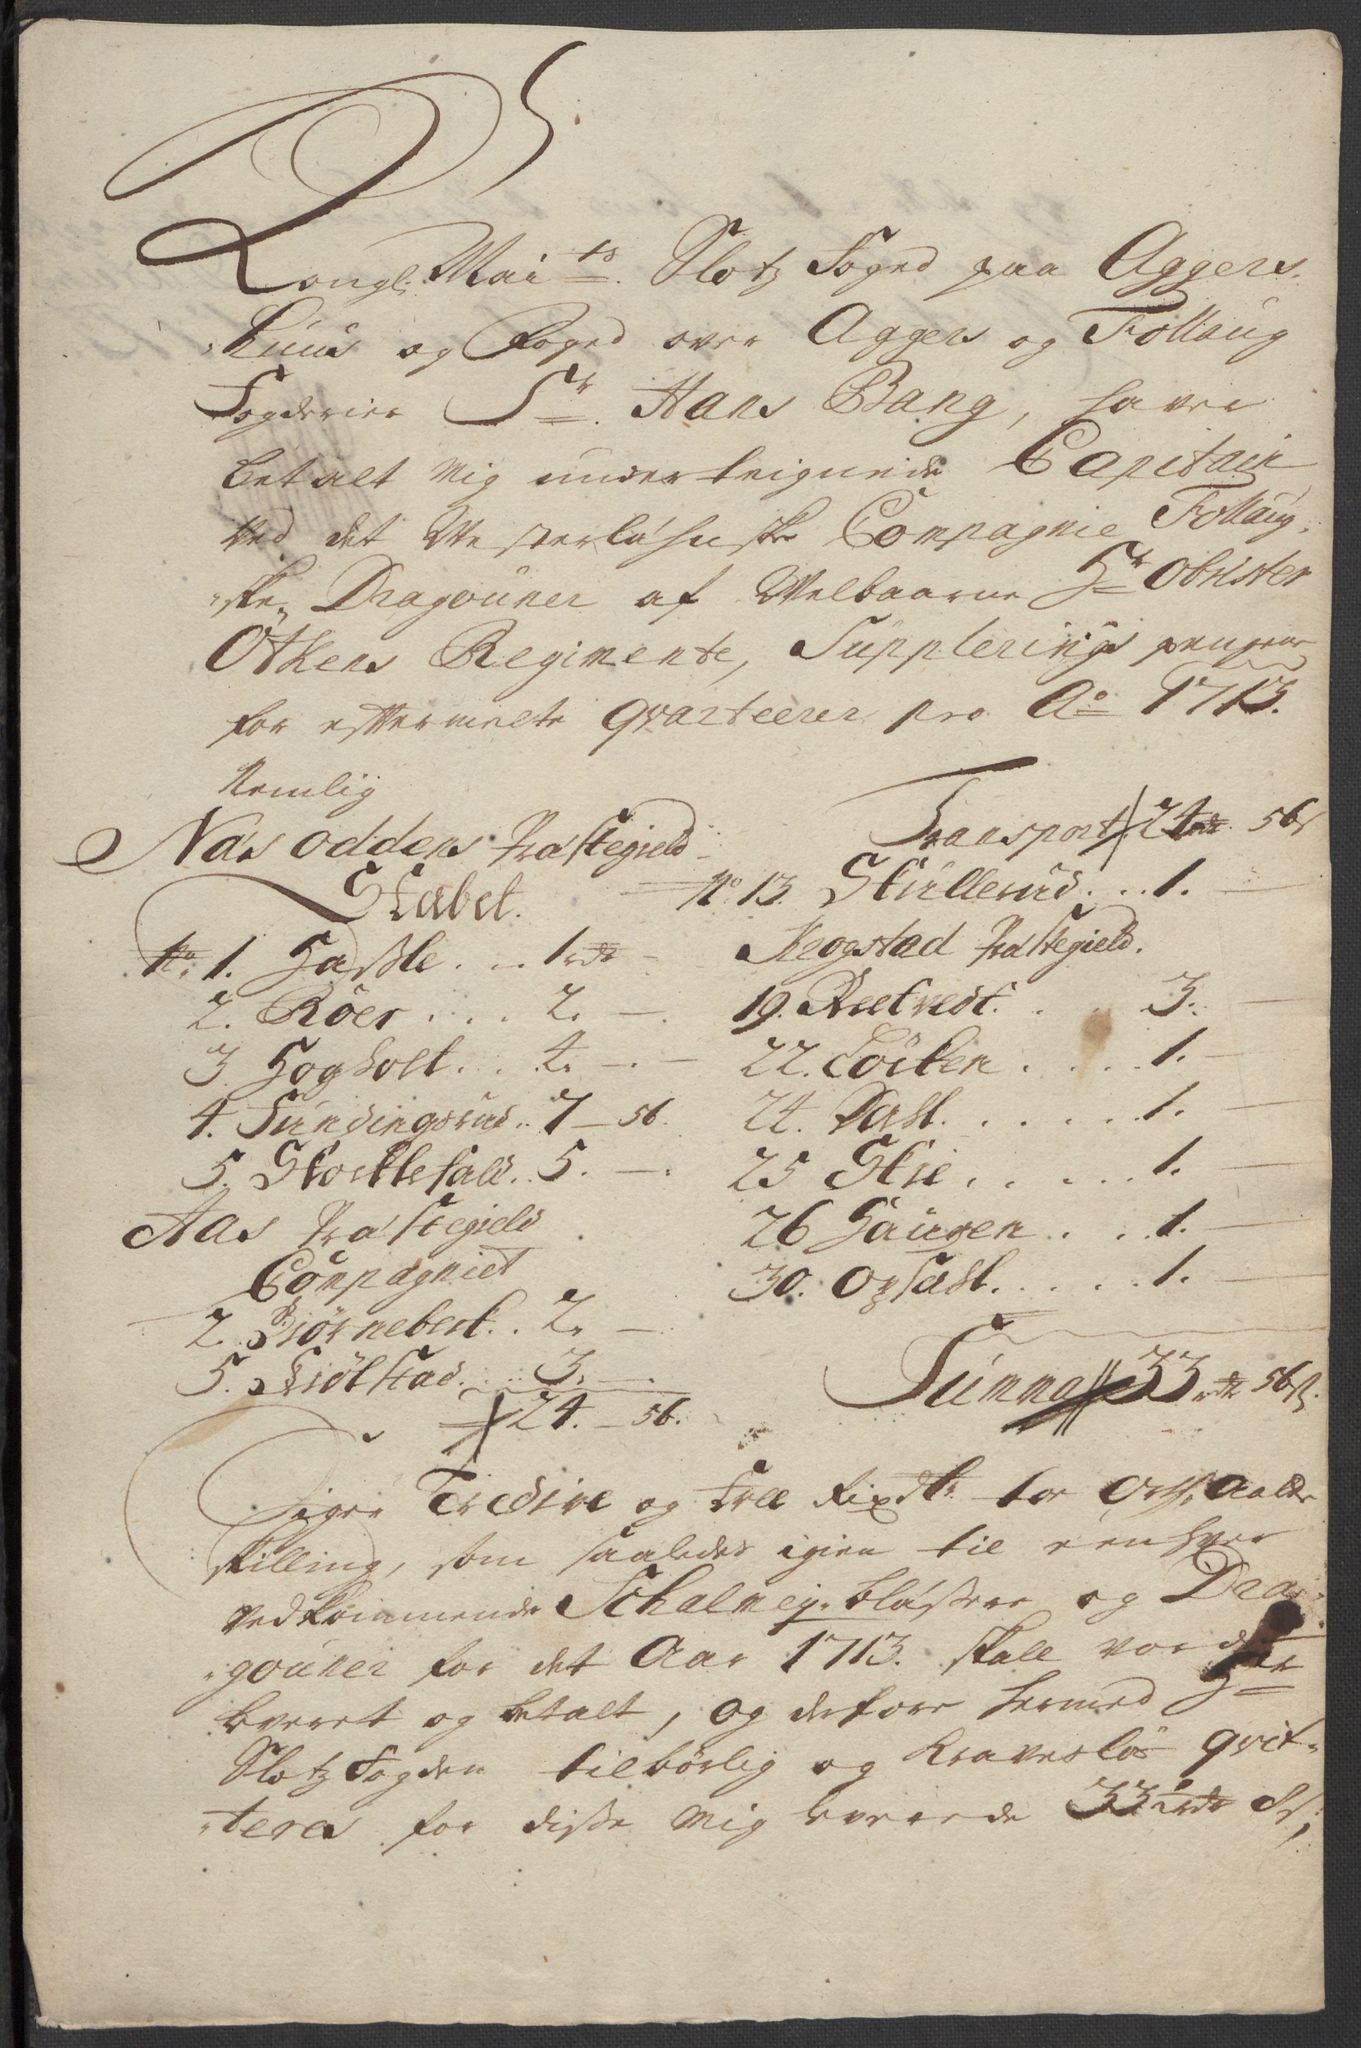 Kongl: Mai ts. Slotz Foged paa Aggers-
huus og Foged over Aggers og Follaug
Fogderier Sr. Hans Bang, haver
betalt mig underteignede Capitain
ved det Westerlöhnske Compagnie Follaug-
ske Dragouner af Welbaarne Hr Obrister
Ötkens Regimente, Supplerings penger
for effermelte qvarteerer pro Ao 1713.
Nemlig
Näsoddens Præstegield
Stabet.
No. 1. Hasle . . . 1 rdr -
2. Röer . . . . 2. -
3 Hogholt . . . 4. -
4. Sundingsrud . . 7 - 56.
5. Skocklefald . . 5. -
Aas Præstegield
Compagniet
2. Biörnebeck . . 2. -
5. Kiölstad . . . 3. -
24. - 56.
Transport 24 rdr 56 s
No 13. Skullerud . . . 1. -
Krogstad Præstegield.
19. Reetvedt . . . . 3. -
22. Löcken . . . . 1. -
24. Dahl . . . . . 1. -
25 Skie . . . . . 1. -
26 Hauger . . . 1. -
30. Opsahl . . . . . 1. -
Summa 33 rdr 56 s.
Siger Tredive og tree Rixdlr
skilling, som saaledes igien til eenhver
vedkommende Schalmej-blåssere og Dra-
gouner for det Aar 1713. skall vorde
leveret og betalt, og derfore hermed Hr
Slotz Fogden tilbörlig og Kraveslös qvit-
teres for disse mig leverede 33 rdr